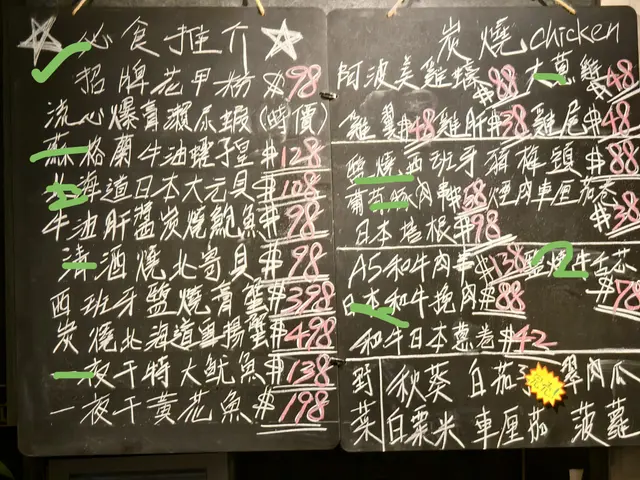 必食推介
招牌花甲粉 $98
流心爆膏瀨尿蝦(時價)
蘇格蘭牛油蟶子皇 $128
北海道日本大元貝 $108
牛油肝醬炭燒鮑魚 $98
清酒燒北寄貝 $98
西班牙鹽燒膏蟹 $398
炭燒北海道粵揚蟹 $498
一夜干特大魷魚 $138
一夜干黃花魚 $198
炭燒chicken
阿波美雞 $88 大蔥雞 $48
雞翼 $48 雞肝 $38 雞尾 $48
鹽燒西班牙豬 $88
葡萄 肉串 $58 煙肉車厘茄 $38
日本 根 $98
A5和牛肉 $138 鹽燒牛舌芯 $78
日本和牛 肉 $88
和牛日本蔥卷 $42
野菜
秋葵 白茄子 翠肉瓜
白粟米 車厘茄 菠蘿